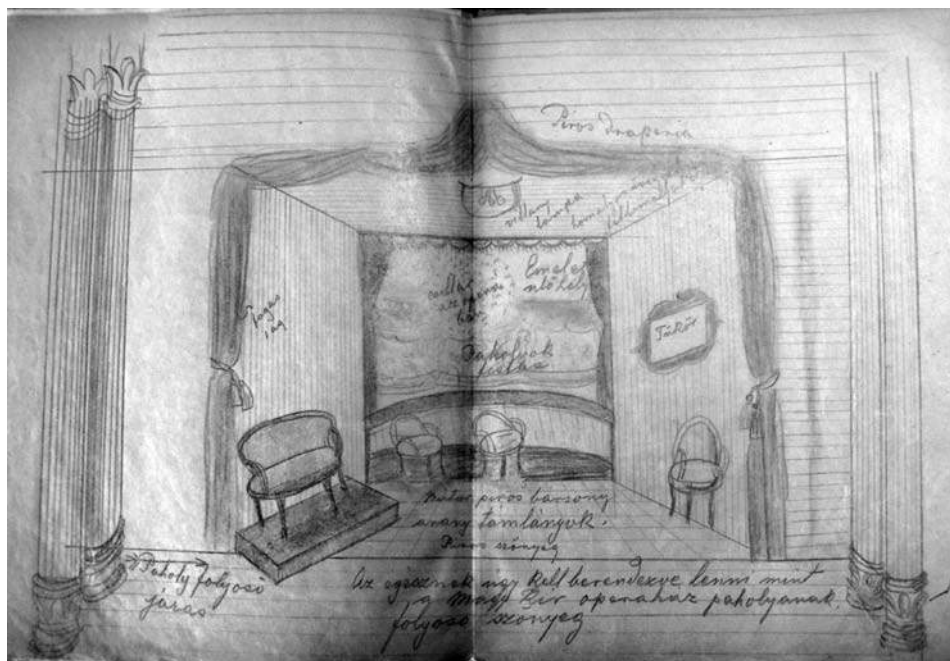 Piros draperia
villany
lámpa
Emelet
ülőhely
csillár
Fogas
Tükör
Paholyok
Butor piros barsony
arany támlányok.
Piros szőnyeg
Paholy folyosó
járás
Az egésznek ugy kell berendezve lenni mint
a Magy Kir operaház paholyanak.
folyosó szőnyeg